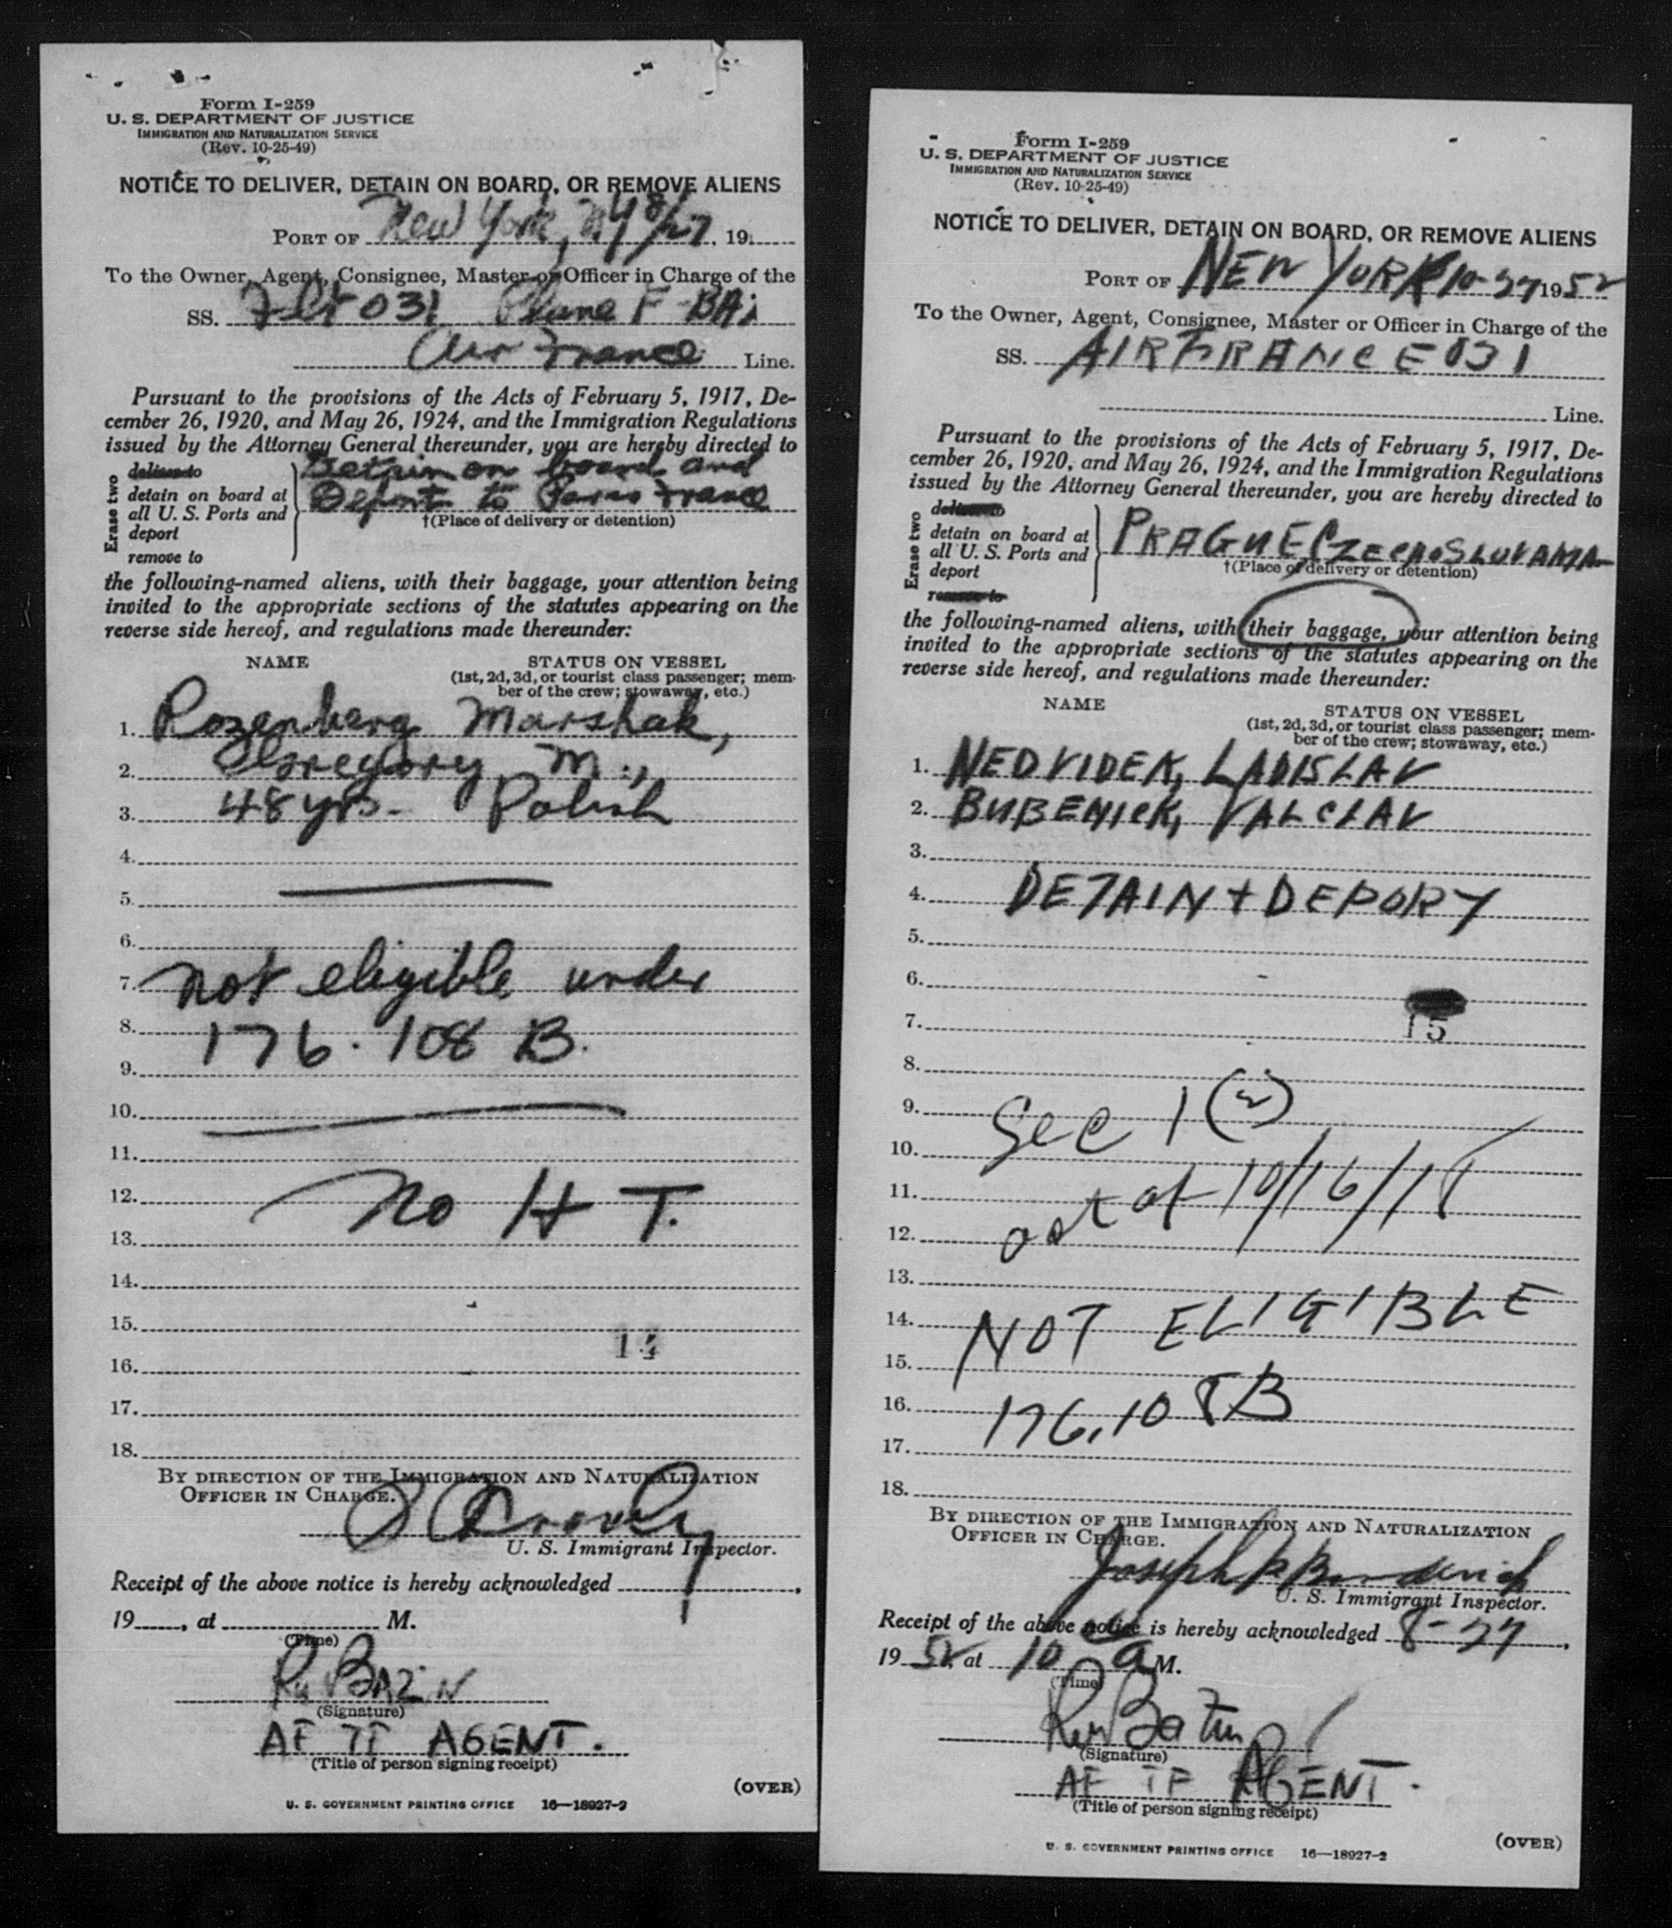 Form I-259
U. S. DEPARTMENT OF JUSTICE
IMMIGRATION AND NATURALIZATION SERVICE
(Rev. 10-25-49)
NOTICE TO DELIVER, DETAIN ON BOARD, OR REMOVE ALIENS
PORT OF New York, NY 8/27, 19
To the Owner, Agent, Consignee, Master or Officer in Charge of the
SS. Flt 031 Plane F-BA
Air France Line.
Pursuant to the provisions of the Acts of February 5, 1917, De-
cember 26, 1920, and May 26, 1924, and the Immigration Regulations
issued by the Attorney General thereunder, you are hereby directed to
Erase two
deliver to
detain on board at
all U. S. Ports and
deport
remove to
Detain on board and
Deport to Paris France
†(Place of delivery or detention)
the following-named aliens, with their baggage, your attention being
invited to the appropriate sections of the statutes appearing on the
reverse side hereof, and regulations made thereunder:
NAME STATUS ON VESSEL
(1st, 2d, 3d, or tourist class passenger; mem-
ber of the crew; stowaway, etc.)
1. Rozenberg Marshak,
2. Gregory M.,
3. 48 yrs. Polish
4.
5.
6.
7. not eligible under
8. 176.108 B.
9.
10.
11.
12. No H T.
13.
14.
15.
16.
17.
18.
BY DIRECTION OF THE IMMIGRATION AND NATURALIZATION
OFFICER IN CHARGE.
U. S. Immigrant Inspector.
Receipt of the above notice is hereby acknowledged
19 , at M.
(Time)
BAZIN
(Signature)
AF TF AGENT.
(Title of person signing receipt)
(OVER)
U. S. GOVERNMENT PRINTING OFFICE 16—18927-2
Form I-259
U. S. DEPARTMENT OF JUSTICE
IMMIGRATION AND NATURALIZATION SERVICE
(Rev. 10-25-49)
NOTICE TO DELIVER, DETAIN ON BOARD, OR REMOVE ALIENS
PORT OF NEW YORK 10-27 1952
To the Owner, Agent, Consignee, Master or Officer in Charge of the
SS. AIR FRANCE 031
Line.
Pursuant to the provisions of the Acts of February 5, 1917, De-
cember 26, 1920, and May 26, 1924, and the Immigration Regulations
issued by the Attorney General thereunder, you are hereby directed to
Erase two
deliver to
detain on board at
all U. S. Ports and
deport
remove to
PRAGUE, CZECHOSLOVAKIA
†(Place of delivery or detention)
the following-named aliens, with their baggage, your attention being
invited to the appropriate sections of the statutes appearing on the
reverse side hereof, and regulations made thereunder:
NAME STATUS ON VESSEL
(1st, 2d, 3d, or tourist class passenger; mem-
ber of the crew; stowaway, etc.)
1. NEDVIDEK, LADISLAV
2. BUBENICK, VALCLAV
3.
4. DETAIN + DEPORT
5.
6.
7. 15
8.
9. Sec 1 (2)
10.
11. act of 10/16/18
12.
13.
14. NOT ELIGIBLE
15.
16. 176.108B
17.
18.
BY DIRECTION OF THE IMMIGRATION AND NATURALIZATION
OFFICER IN CHARGE.
Joseph
U. S. Immigrant Inspector.
Receipt of the above notice is hereby acknowledged 8-27,
1952, at 10 A M.
(Time)
Bazin
(Signature)
AF TF AGENT.
(Title of person signing receipt)
(OVER)
U. S. GOVERNMENT PRINTING OFFICE 16—18927-2